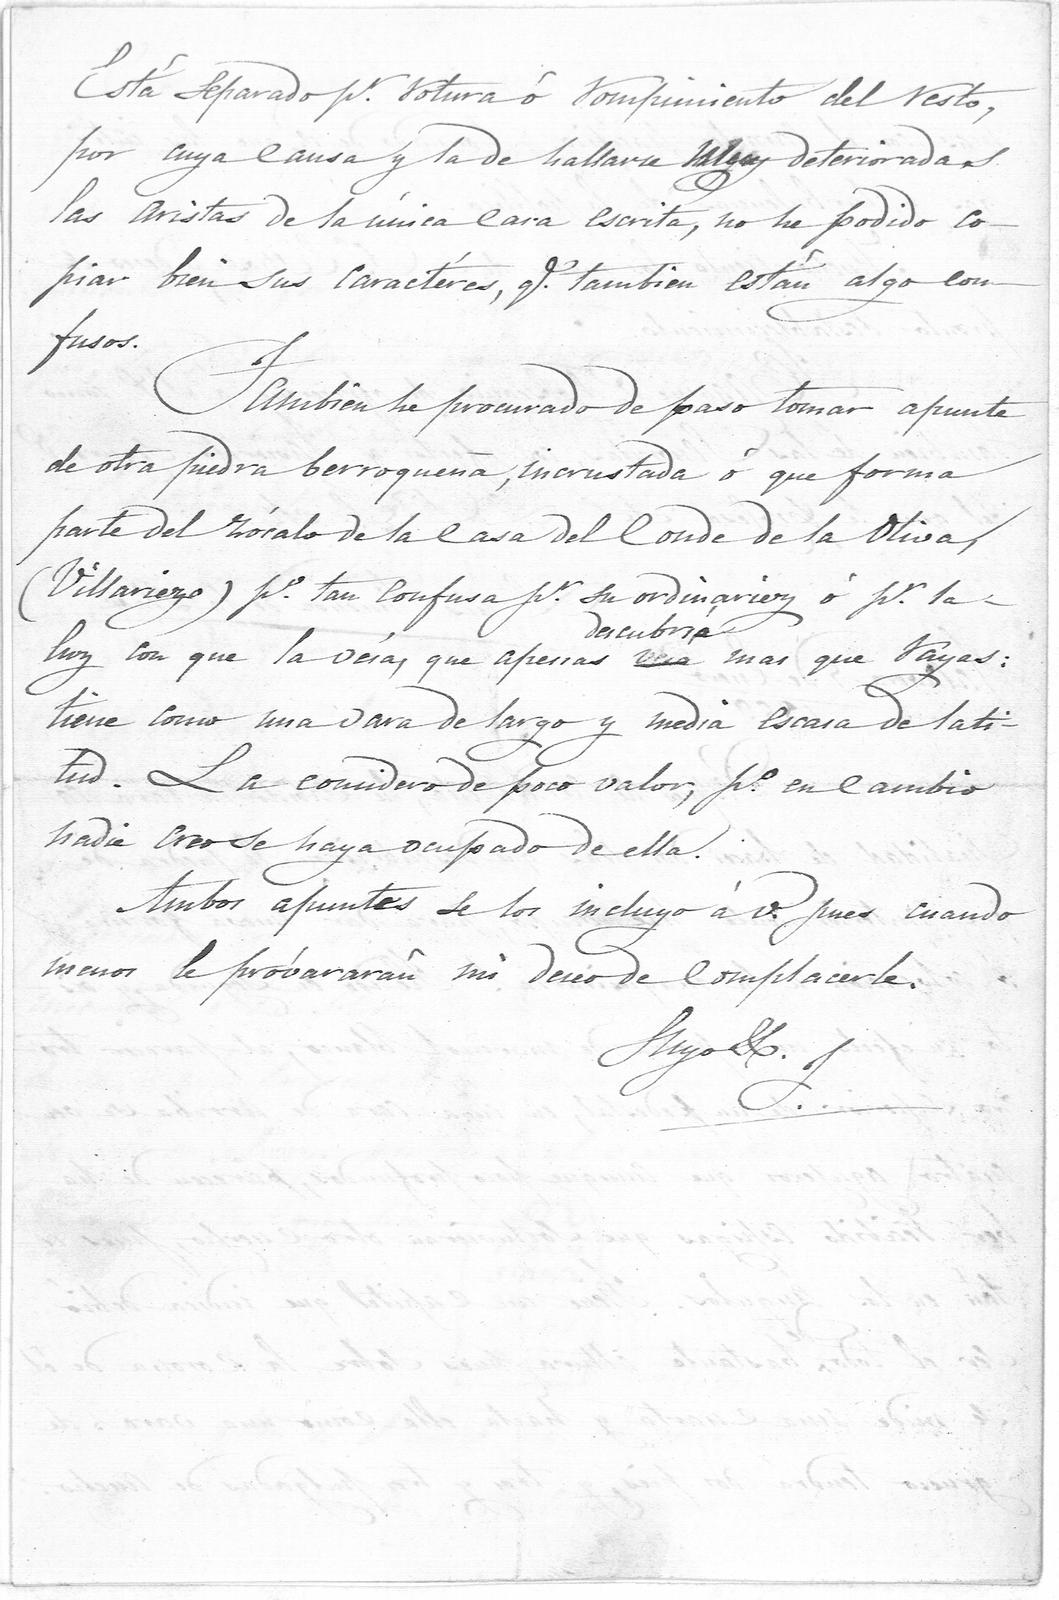 Está separado pr. rotura ó rompimiento del resto,
por cuya causa y la de hallarse muy deterioradas
las aristas de la única cara escrita, no he podido co-
piar bien sus caractéres, qe. tambien están algo con-
fusos.
Tambien he procurado de paso tomar apunte
de otra piedra berroqueña, incrustada ó que forma
parte del zócalo de la Casa del Conde de la Oliva,
(Villariezo) po. tan confusa pr. su ordinariez ó pr. la
descubria
luz con que la véia, que apenas veia mas que rayas:
tiene como una vara de largo y media escasa de lati-
tud. La considero de poco valor, po. en cambio
nadie creo se haya ocupado de ella.
Ambos apuntes se los incluyo á V. pues cuando
menos le próvararán mi deseo de complacerle.
Suyo &.